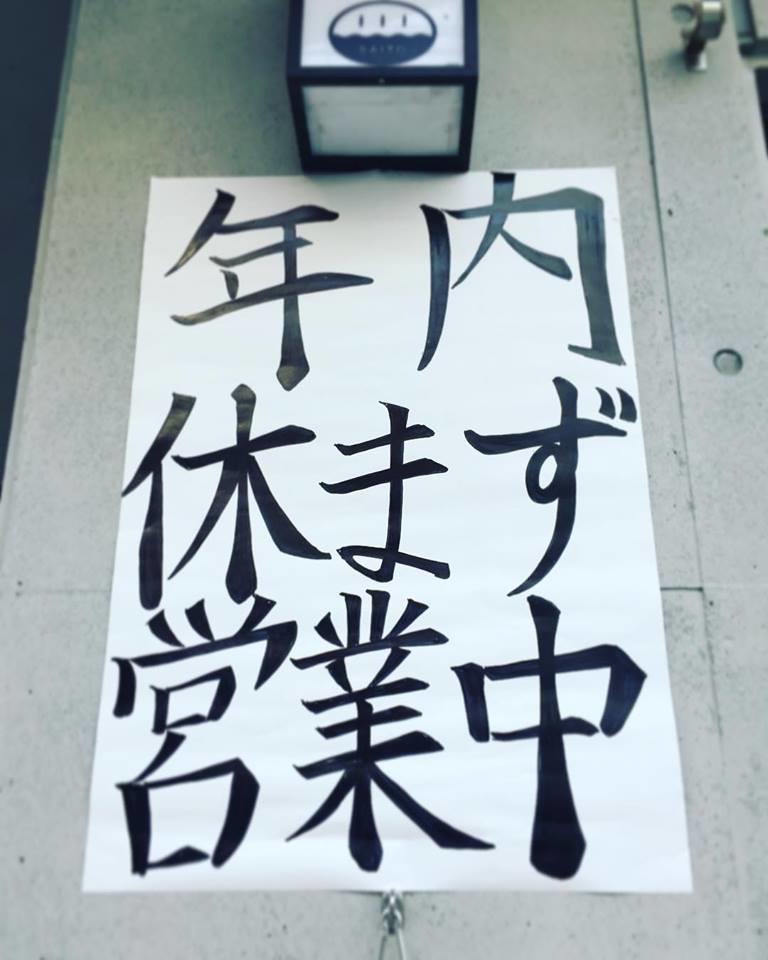 SAITO
年内
休まず
営業中